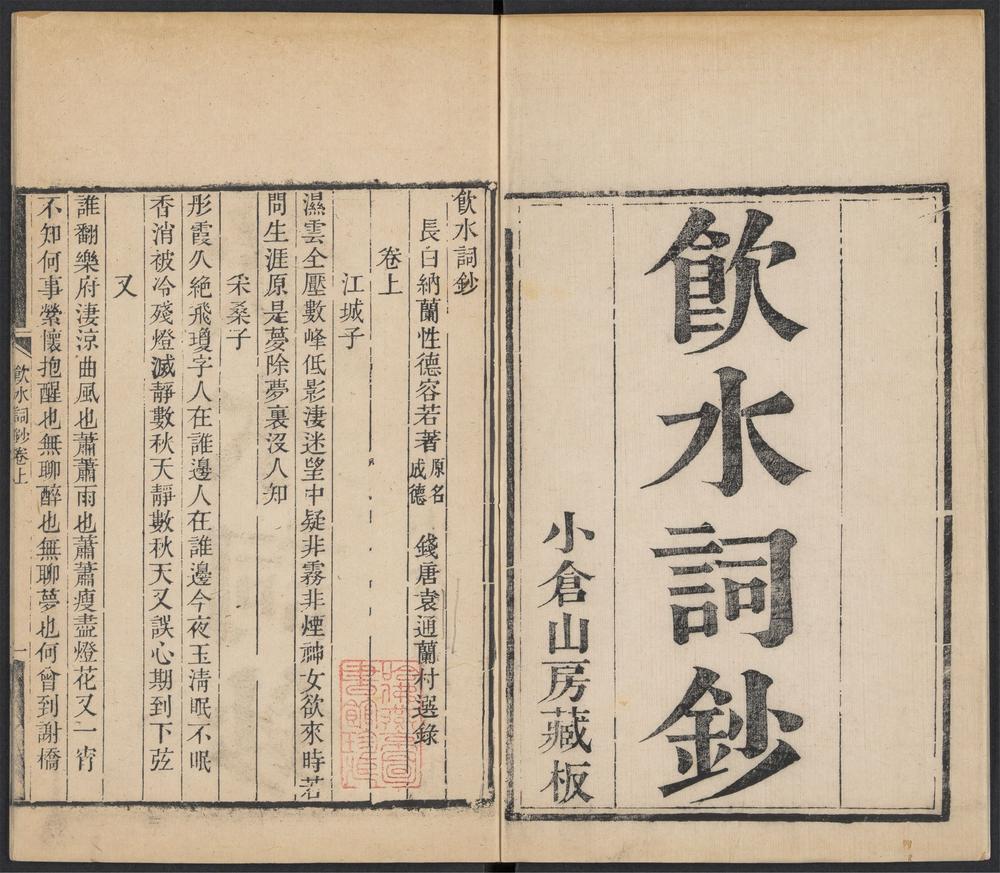 飲水詞鈔
小倉山房藏板
飲水詞鈔
長白納蘭性德容若著
原名
成德
錢唐袁通蘭村選錄
卷上
江城子
濕雲全壓數峰低影淒迷望中疑非霧非煙神女欲來時若
問生涯原是夢除夢裏沒人知
采桑子
彤霞久絕飛瓊字人在誰邊人在誰邊今夜玉清眠不眠
香消被冷殘燈滅靜數秋天靜數秋天又誤心期到下弦
又
誰翻樂府淒涼曲風也蕭蕭雨也蕭蕭瘦盡燈花又一宵
不知何事縈懷抱醒也無聊醉也無聊夢也何曾到謝橋
飲水詞鈔卷上
一
哈佛燕京圖
書館珍藏